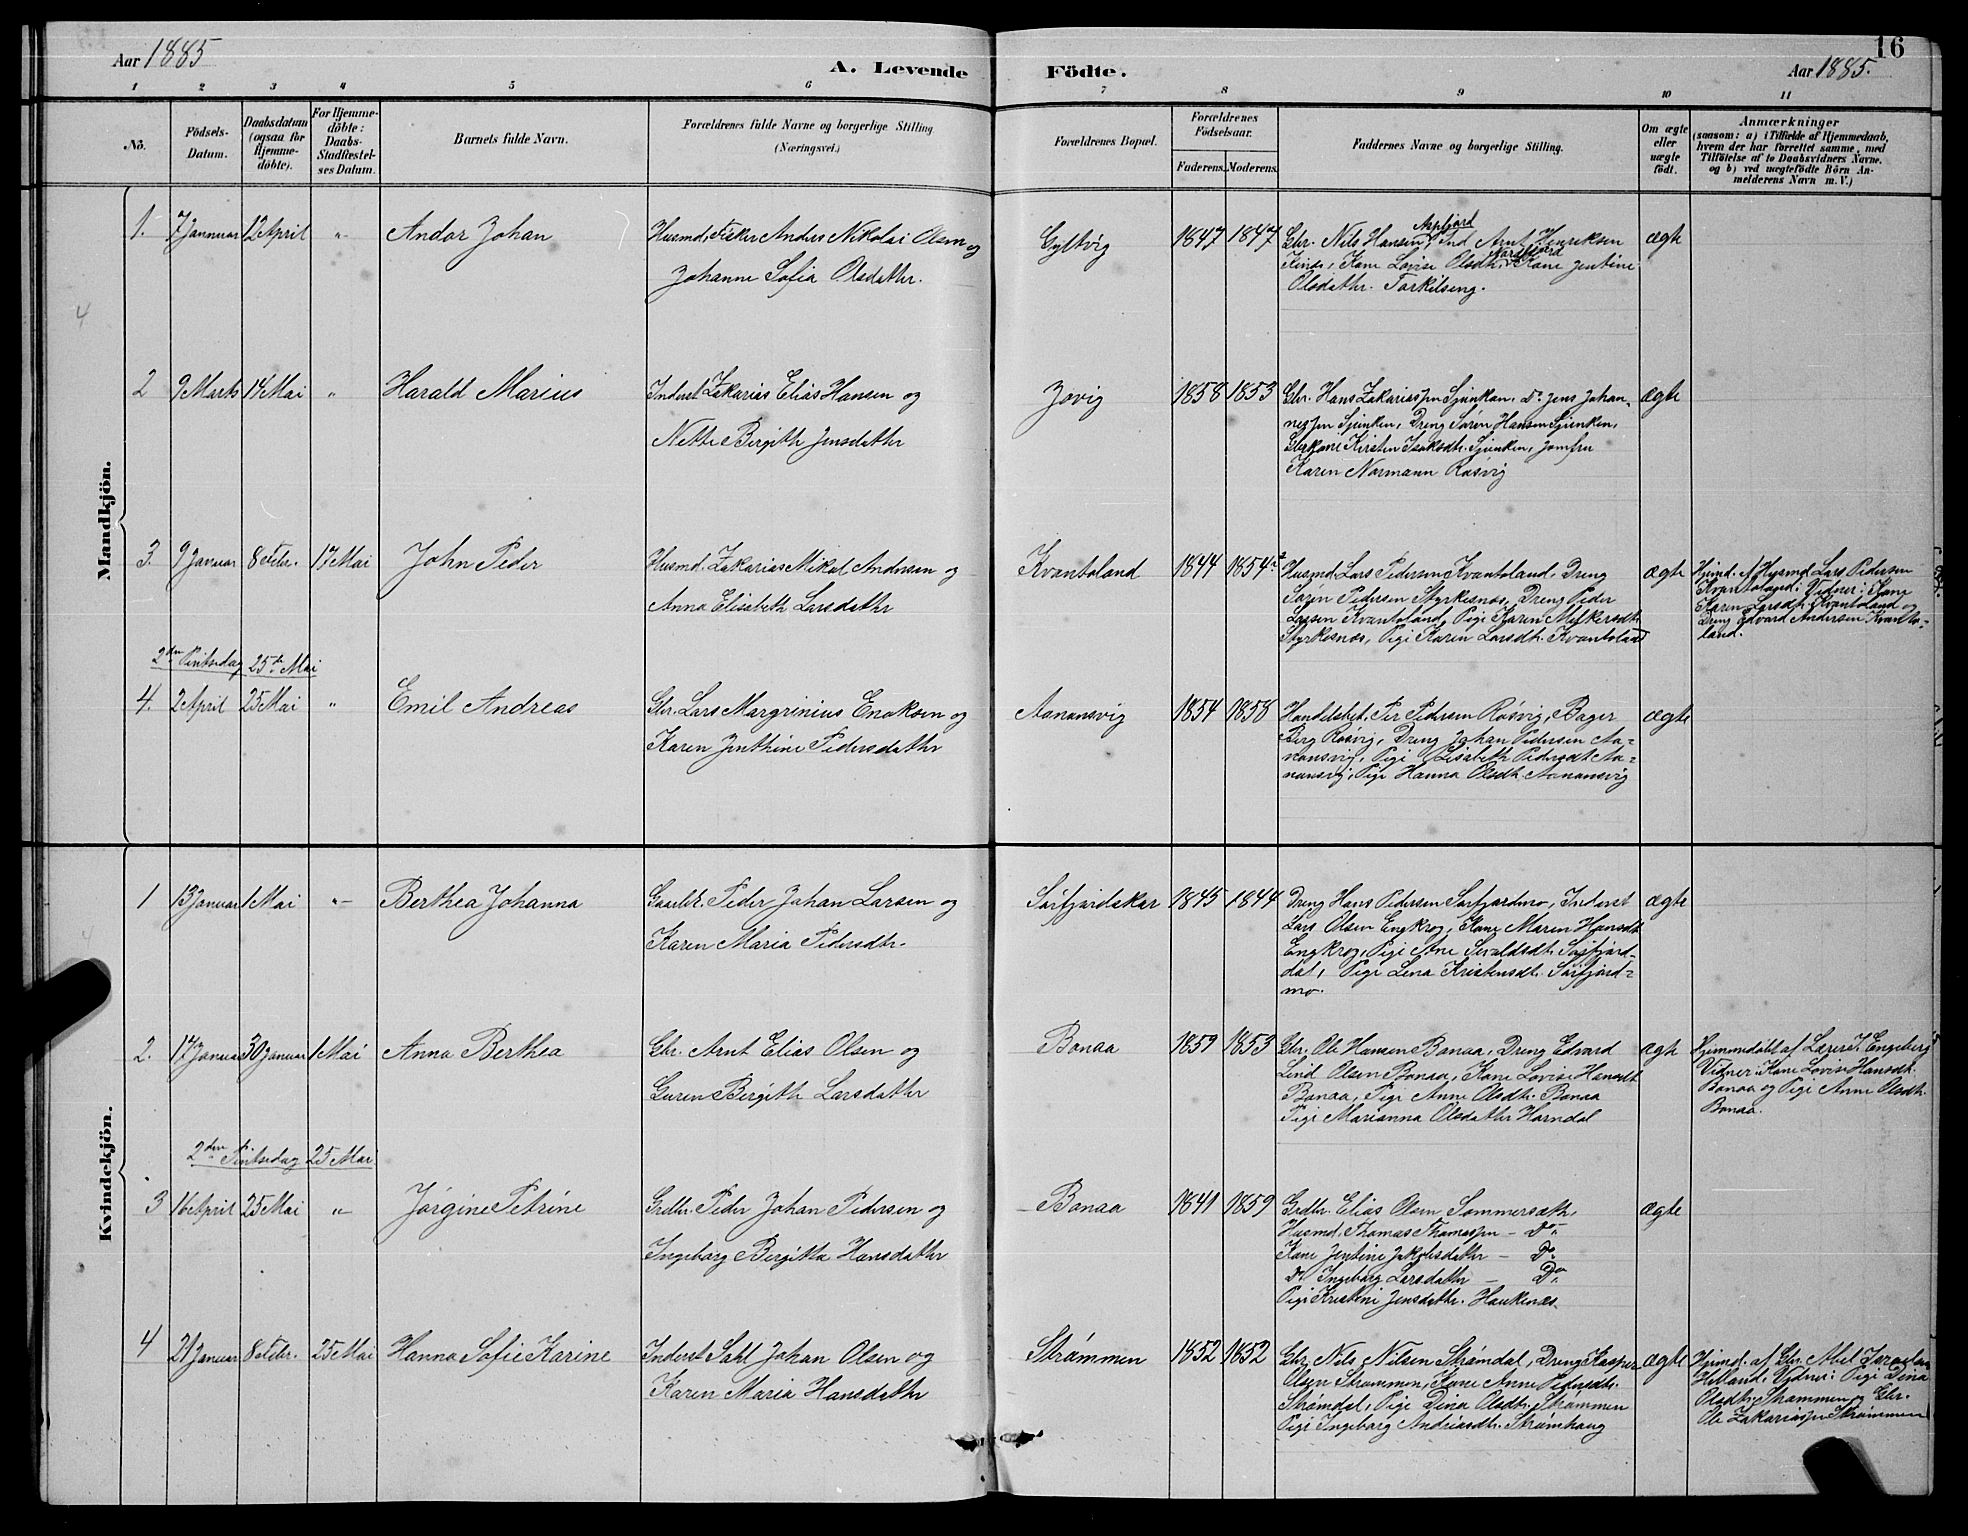 Aar 1885
A. Levende Fødte.
16
Aar 1885.
1 2 3 4 5 6 7 8 9 10 11
No.
Fødsels-
Datum.
Daabsdatum
(ogsaa for
Hjemme-
døbte).
For Hjemme-
døbte:
Daabs-
Stadfæstel-
ses Datum.
Barnets fulde Navn.
Forældrenes fulde Navne og borgerlige Stilling
(Næringsvei.)
Forældrenes Bopæl.
Forældrenes
Fødselsaar.
Faderens. Moderens.
Faddernes Navne og borgerlige Stilling.
Om ægte
eller
uægte
født.
Anmærkninger
(saasom: a) i Tilfælde af Hjemmedaab,
hvem der har forrettet samme, med
Tilføielse af to Daabsvidners Navne,
og b) ved uægtefødte Børn An-
melderens Navn m. V.)
Mandkjøn.
4
1. 7 Januar 12 April " Andor Johan
Husmd, Fisker Anders Nikolai Olsen og
Johanne Sofia Olsdathr.
Gyltvig 1847 1847
Aspfjord
Gbr. Nils Hansen, Ind Arnt Henriksen
Kines, Kone Lovise Olsdth. Kone Jentine
Olsdathr. Torkilseng.
ægte
2 9 Marts 14 Mai " Harald Marius
Inderst Zakarias Elias Hansen og
Nette Bergith Jensdathr
Jovig 1858 1853
Gbr. Hans Zakariassen Sjunken, Do Jens Johan-
nessen Sjunken, Dreng Søren Hansen Sjunken,
Gbrkone Kirsten Isaksdtr. Sjunken, Jomfru
Karen Normann Røsvig
ægte
3. 9 Januar 8 Febr. 17 Mai John Peder
Husmd. Zakarias Mikal Andersen og
Anna Elisabeth Larsdathr
Kvantoland 1844 1854
Husmd. Lars Pedersen Kvantoland, Dreng
Søren Pedersen Styrkesnes, Dreng Peder
Larsen Kvantoland, Pige Karen
Styrkesnæs, Pige Karen Larsdth. Kvantoland
ægte
Hjemd. af Husmd Lars Pedersen
Kvantoland. Vidner: Kone
Karen Larsdth. Kvantoland og
Dreng Edvard Andersen Kvanto-
land.
2den Pintsedag 25de Mai
4. 2 April 25 Mai " Emil Andreas
Gbr. Lars Margrinius Enoksen og
Karen Jenthine Pedersdathr
Aanansvig 1854 1858
Handelsbet. Per Pedersen Røsvig, Bager
Berg Røsvig, Dreng Johan Pedersen Aa-
nansvig, Pige Elisabeth Pedersdt Aa-
nansvig, Pige Hanna Olsdt. Aanansvig
ægte
Kvindekjøn.
4
1 13 Januar 1 Mai " Berthea Johanna
Gaarbr. Peder Johan Larsen og
Karen Maria Pedersdtr.
Sørfjordskar 1845 1844
Dreng Hans Pedersen Sørfjordmo, Inderst
Lars Olsen Engkrog, Kone Maren Hansdt
Engkrog, Pige Ane Sivaldsdt. Sørfjord-
dal, Pige Lena Kristensdt. Sørfjord-
mo.
ægte
2. 17 Januar 30 Januar 1 Mai Anna Berthea
Gbr. Arnt Elias Olsen og
Guren Bergith Larsdathr
Bonaa 1859 1853
Gbr, Ole Hansen Bonaa, Dreng Edvard
Lind Olsen Bonaa, Kone Lovise Hansdt
Bonaa, Pige Anne Olsdth. Bonaa
Pige Marianna Olsdathr Horndal
ægte
Hjemmedøbt af Lærer J. Engeberg
Vidner: Kone Lovise Hansdt.
Bonaa og Pige Anne Olsdth.
Bonaa.
2den Pintsedag 25 Mai
3 16 April 25 Mai " Jørgine Petrine
Grdbr. Peder Johan Pedersen og
Ingeborg Bergitta Hansdathr
Bonaa 1841 1859
Grdbr. Elias Olsen Sommersæth,
Husmd. Thomas Thomassen – Do
Kone Jentine Jakobsdathr – Do
Do Ingeborg Larsdathr – Do
Pige Kristine Jensdathr. Haukenæs
ægte
4 21 Januar 8 Febr. 25 Mai Hanna Sofie Karine
Inderst Sahl Johan Olsen og
Karen Maria Hansdathr
Strømmen 1852 1852
Gbr. Nils Nilsen Strømdal, Dreng Kasper
Olsen Strømmen, Kone Anne Pedersdt.
Strømdal, Pige Dina Olsdth. Strømmen
Pige Ingeborg Andreasdt. Strømhaug
ægte
Hjemd. af Gbr. Abel Israelsen
Helland, Vidner: Pige Dina
Olsdth. Strømmen og Gbr.
Ole Zakariassen Strømmen